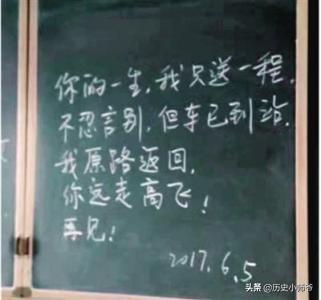 你的一生，我只送一程，
不忍言别，但车已到站，
我原路返回，
你远走高飞！
再见！
2017.6.5
头条 @历史小师爷